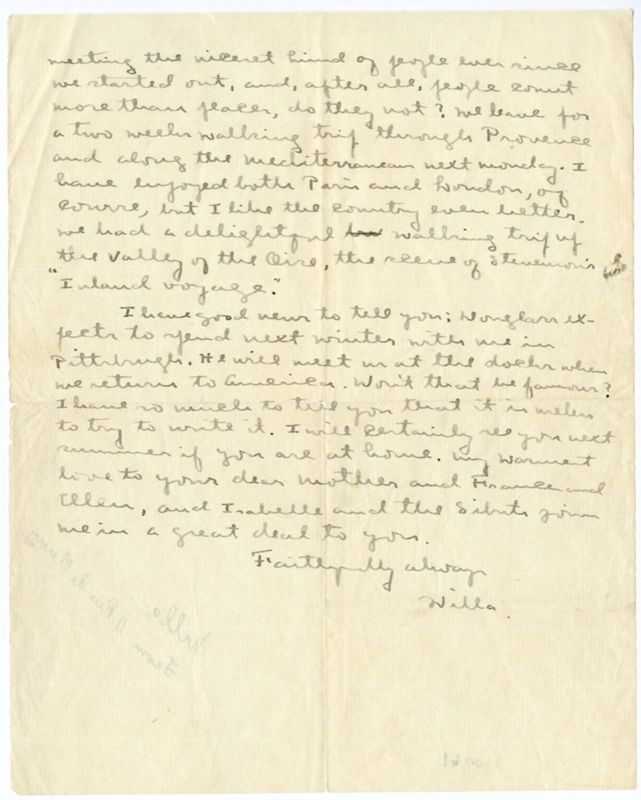 meeting the nicest kind of people ever since
we started out, and, after all, people count
more than places, do they not? We leave for
a two weeks walking trip through Provence
and along the Mediterranean next Monday. I
have enjoyed both Paris and London, of
course, but I like the country even better.
We had a delightful walking trip up
the Valley of the Oise, the scene of Stevenson's
"Inland Voyage."
I have good news to tell you: Douglass ex-
pects to spend next winter with me in
Pittsburgh. He will meet us at the docks when
we return to America. Won't that be famous?
I have so much to tell you that it is useless
to try to write it. I will certainly see you next
summer if you are at home. My warmest
love to your dear mother and Frances and
Ellen, and Isabelle and the Sibuts join
me in a great deal to you.
Faithfully always
Willa.
Willa
from